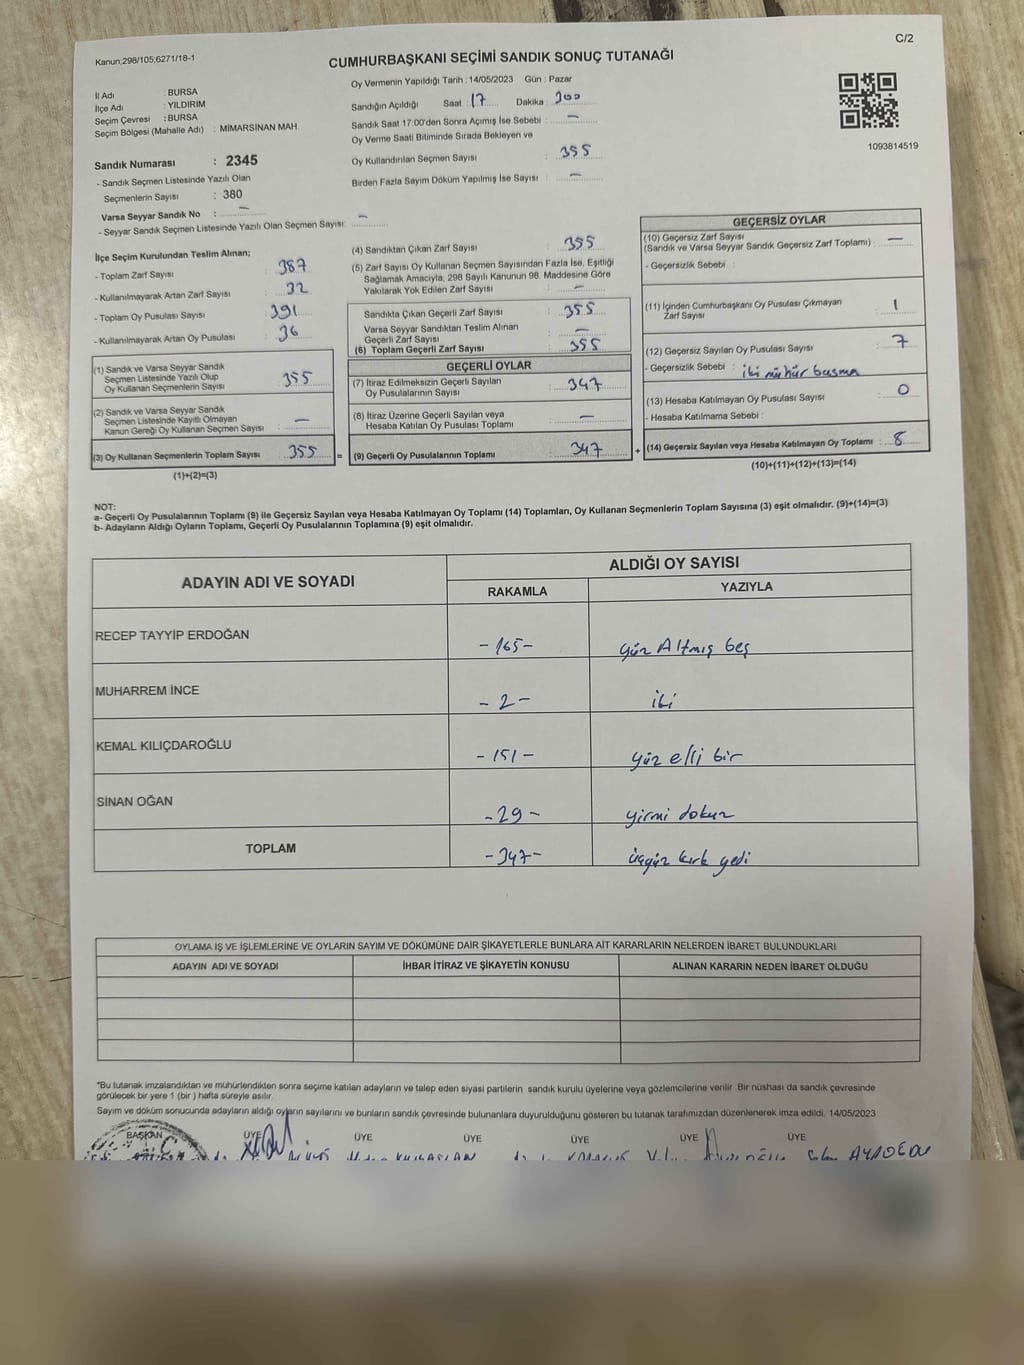 C/2
Kanun;298/105;6271/18-1
CUMHURBAŞKANI SEÇİMİ SANDIK SONUÇ TUTANAĞI
Oy Vermenin Yapıldığı Tarih : 14/05/2023 Gün : Pazar
İl Adı : BURSA
İlçe Adı : YILDIRIM
Seçim Çevresi : BURSA
Seçim Bölgesi (Mahalle Adı) : MİMARSİNAN MAH.
Sandığın Açıldığı Saat : 17 Dakika : 300
Sandık Saat 17:00'den Sonra Açımış İse Sebebi : —
Oy Verme Saati Bitiminde Sırada Bekleyen ve
Oy Kullandırılan Seçmen Sayısı : 355
Birden Fazla Sayım Döküm Yapılmış İse Sayısı : —
1093814519
Sandık Numarası : 2345
- Sandık Seçmen Listesinde Yazılı Olan
Seçmenlerin Sayısı : 380
Varsa Seyyar Sandık No : —
- Seyyar Sandık Seçmen Listesinde Yazılı Olan Seçmen Sayısı: —
İlçe Seçim Kurulundan Teslim Alınan;
- Toplam Zarf Sayısı : 387
- Kullanılmayarak Artan Zarf Sayısı : 32
- Toplam Oy Pusulası Sayısı : 391
- Kullanılmayarak Artan Oy Pusulası : 36
(1) Sandık ve Varsa Seyyar Sandık
Seçmen Listesinde Yazılı Olup
Oy Kullanan Seçmenlerin Sayısı : 355
(2) Sandık ve Varsa Seyyar Sandık
Seçmen Listesinde Kayıtlı Olmayan
Kanun Gereği Oy Kullanan Seçmen Sayısı : —
(3) Oy Kullanan Seçmenlerin Toplam Sayısı : 355 =
(1)+(2)=(3)
(4) Sandıktan Çıkan Zarf Sayısı : 355
(5) Zarf Sayısı Oy Kullanan Seçmen Sayısından Fazla İse, Eşitliği
Sağlamak Amacıyla; 298 Sayılı Kanunun 98. Maddesine Göre
Yakılarak Yok Edilen Zarf Sayısı : —
Sandıkta Çıkan Geçerli Zarf Sayısı : 355
Varsa Seyyar Sandıktan Teslim Alınan
Geçerli Zarf Sayısı : —
(6) Toplam Geçerli Zarf Sayısı : 355
GEÇERLİ OYLAR
(7) İtiraz Edilmeksizin Geçerli Sayılan
Oy Pusulalarının Sayısı : 347
(8) İtiraz Üzerine Geçerli Sayılan veya
Hesaba Katılan Oy Pusulası Toplamı : —
(9) Geçerli Oy Pusulalarının Toplamı : 347 +
GEÇERSİZ OYLAR
(10) Geçersiz Zarf Sayısı
(Sandık ve Varsa Seyyar Sandık Geçersiz Zarf Toplamı) : —
- Geçersizlik Sebebi :
(11) İçinden Cumhurbaşkanı Oy Pusulası Çıkmayan
Zarf Sayısı : 1
(12) Geçersiz Sayılan Oy Pusulası Sayısı : 7
- Geçersizlik Sebebi : iki mühür basma
(13) Hesaba Katılmayan Oy Pusulası Sayısı : 0
- Hesaba Katılmama Sebebi :
(14) Geçersiz Sayılan veya Hesaba Katılmayan Oy Toplamı : 8
(10)+(11)+(12)+(13)=(14)
NOT:
a- Geçerli Oy Pusulalarının Toplamı (9) ile Geçersiz Sayılan veya Hesaba Katılmayan Oy Toplamı (14) Toplamları, Oy Kullanan Seçmenlerin Toplam Sayısına (3) eşit olmalıdır. (9)+(14)=(3)
b- Adayların Aldığı Oyların Toplamı, Geçerli Oy Pusulalarının Toplamına (9) eşit olmalıdır.
ADAYIN ADI VE SOYADI
ALDIĞI OY SAYISI
RAKAMLA YAZIYLA
RECEP TAYYİP ERDOĞAN -165- yüz Altmış beş
MUHARREM İNCE -2- iki
KEMAL KILIÇDAROĞLU -151- yüz elli bir
SİNAN OĞAN -29- yirmi dokuz
TOPLAM -347- üçyüz kırk yedi
OYLAMA İŞ VE İŞLEMLERİNE VE OYLARIN SAYIM VE DÖKÜMÜNE DAİR ŞİKAYETLERLE BUNLARA AİT KARARLARIN NELERDEN İBARET BULUNDUKLARI
ADAYIN ADI VE SOYADI İHBAR İTİRAZ VE ŞİKAYETİN KONUSU ALINAN KARARIN NEDEN İBARET OLDUĞU
*Bu tutanak imzalandıktan ve mühürlendikten sonra seçime katılan adayların ve talep eden siyasi partilerin sandık kurulu üyelerine veya gözlemcilerine verilir. Bir nüshası da sandık çevresinde
görülecek bir yere 1 (bir) hafta süreyle asılır.
Sayım ve döküm sonucunda adayların aldığı oyların sayılarını ve bunların sandık çevresinde bulunanlara duyurulduğunu gösteren bu tutanak tarafımızdan düzenlenerek imza edildi. 14/05/2023
BAŞKAN ÜYE ÜYE ÜYE ÜYE ÜYE ÜYE